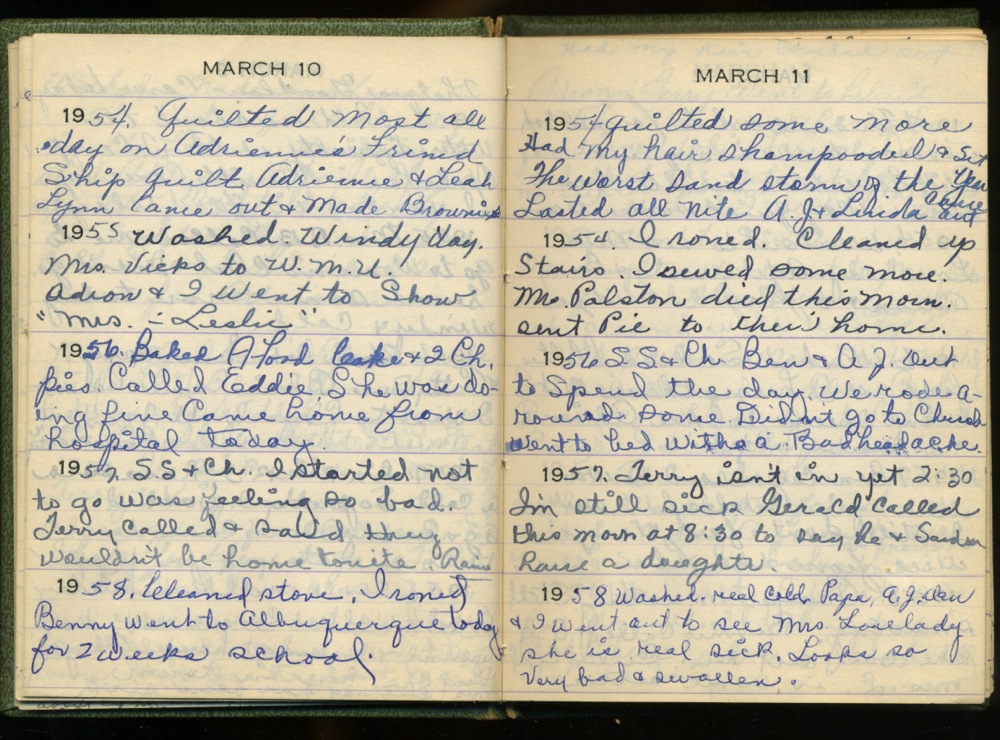 MARCH 10
1954. Quilted most all
day on Adrienne's Frind
Ship quilt. Adrienne & Leah
Lynn Came out & Made Brownies
1955 Washed. Windy day.
Mrs. Vicks to W.M.U.
Adron & I went to Show
"Mrs. - Leslie"
1956. Baked A food cake & 2 Ch.
pies. Called Eddie, She was do-
ing fine Came home from
hospital today.
1957. S.S & Ch. I started not
to go was feeling so bad.
Terry called & said they
wouldn't be home tonite. Rains
1958. Cleaned stove, Ironed
Benny went to Albuquerque today
for 2 weeks school.
MARCH 11
1954 quilted some more
Had my hair shampooded & Set
The worst sand storm of the Year
Lasted all nite A.J & Linida Came out
1954. Ironed. Cleaned up
Stairs. I sewed some more.
Mr. Palston died this morn.
sent Pie to their home.
1956 S.S & Ch. Ben & A.J. out
to Spend the day. We rode a-
round some. Didn't go to Church
went to bed with a Bad headache.
1957. Terry isn't in yet 2:30
I'm still sick Gerald called
this morn at 8:30 to say he & Sandra
have a daughter.
1958 Washed. real cold. Papa, A.J.
& I went out to see Mrs. Lovelady
she is real sick. Looks so
Very bad & swollen.